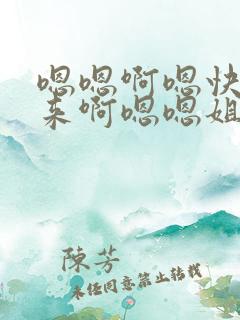 嗯嗯啊嗯快
来啊嗯嗯姐
陳芳
未经同意禁止转载